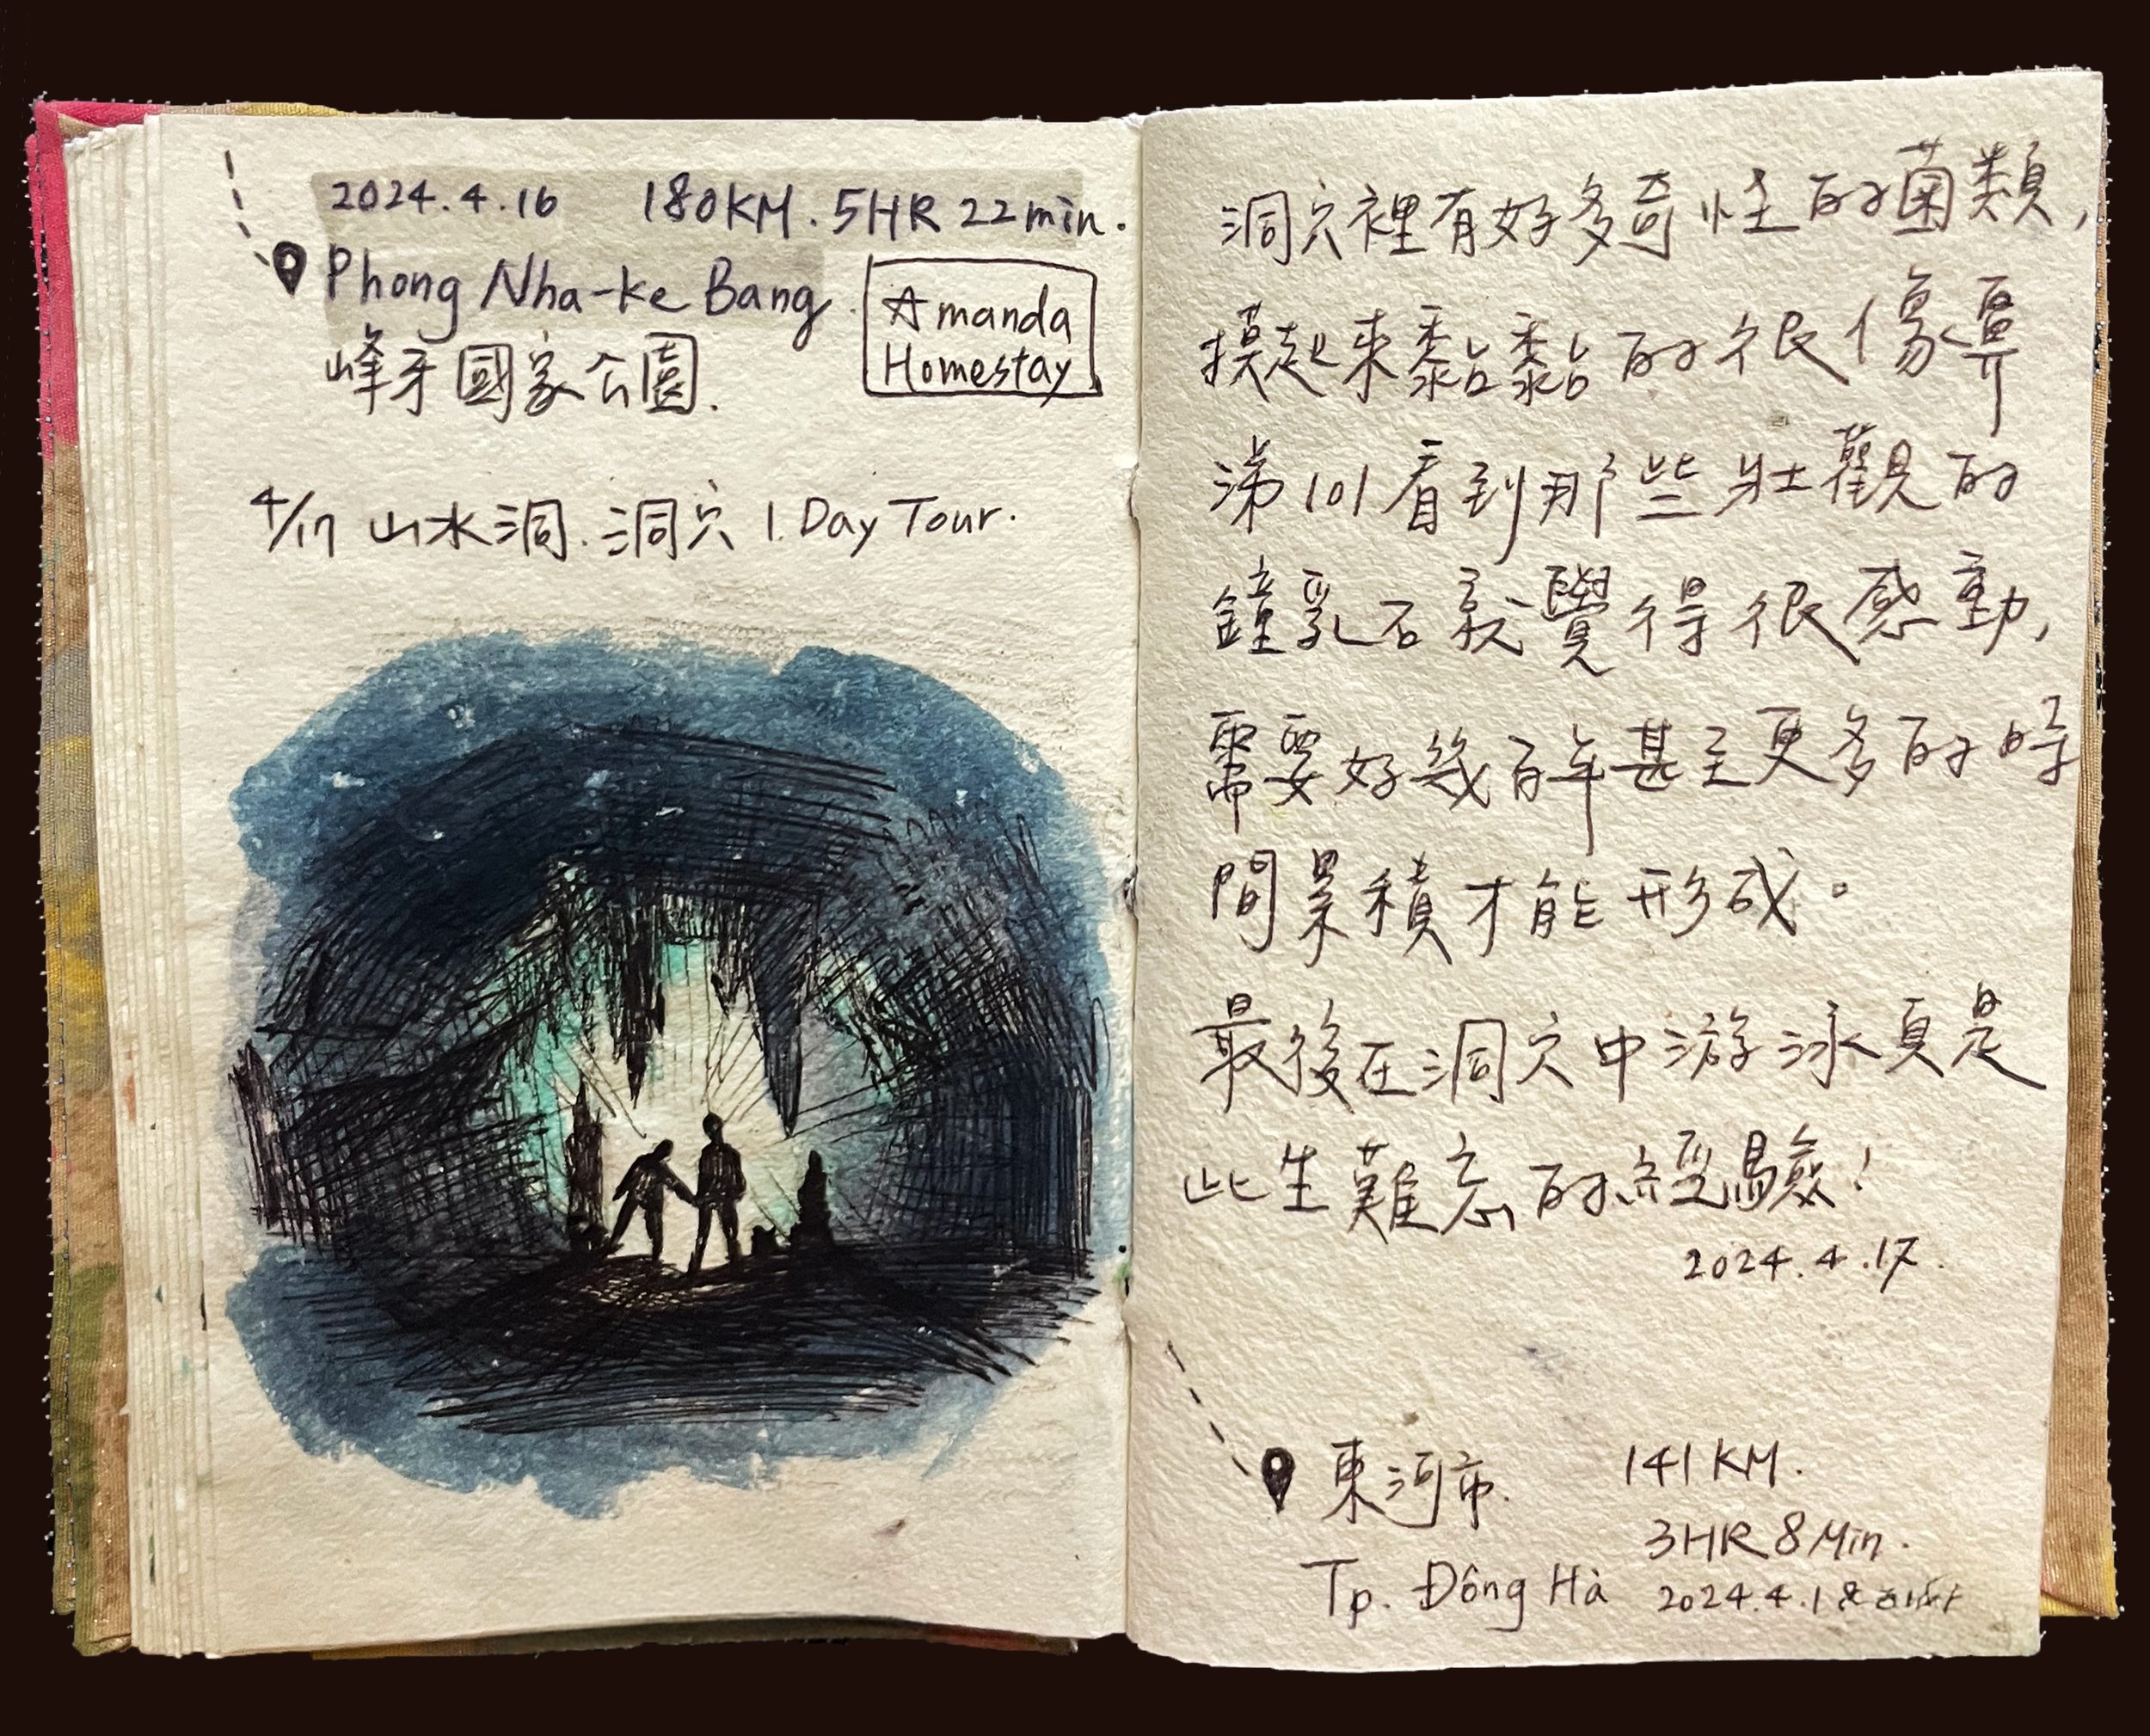 2024.4.16 180KM. 5HR 22min.
Phong Nha-ke Bang.
峰牙國家公園.
Amanda
Homestay
4/17 山水洞.洞穴 1.Day Tour.
洞穴裡有好多奇怪的菌類,
摸起來黏黏的很像鼻
涕 lol 看到那些壯觀的
鐘乳石就覺得很感動,
需要好幾百年甚至更多的時
間累積才能形成。
最後在洞穴中游泳真是
此生難忘的經驗!
2024.4.17.
東河市. 141KM.
3HR 8Min.
Tp. Đông Hà 2024.4.18